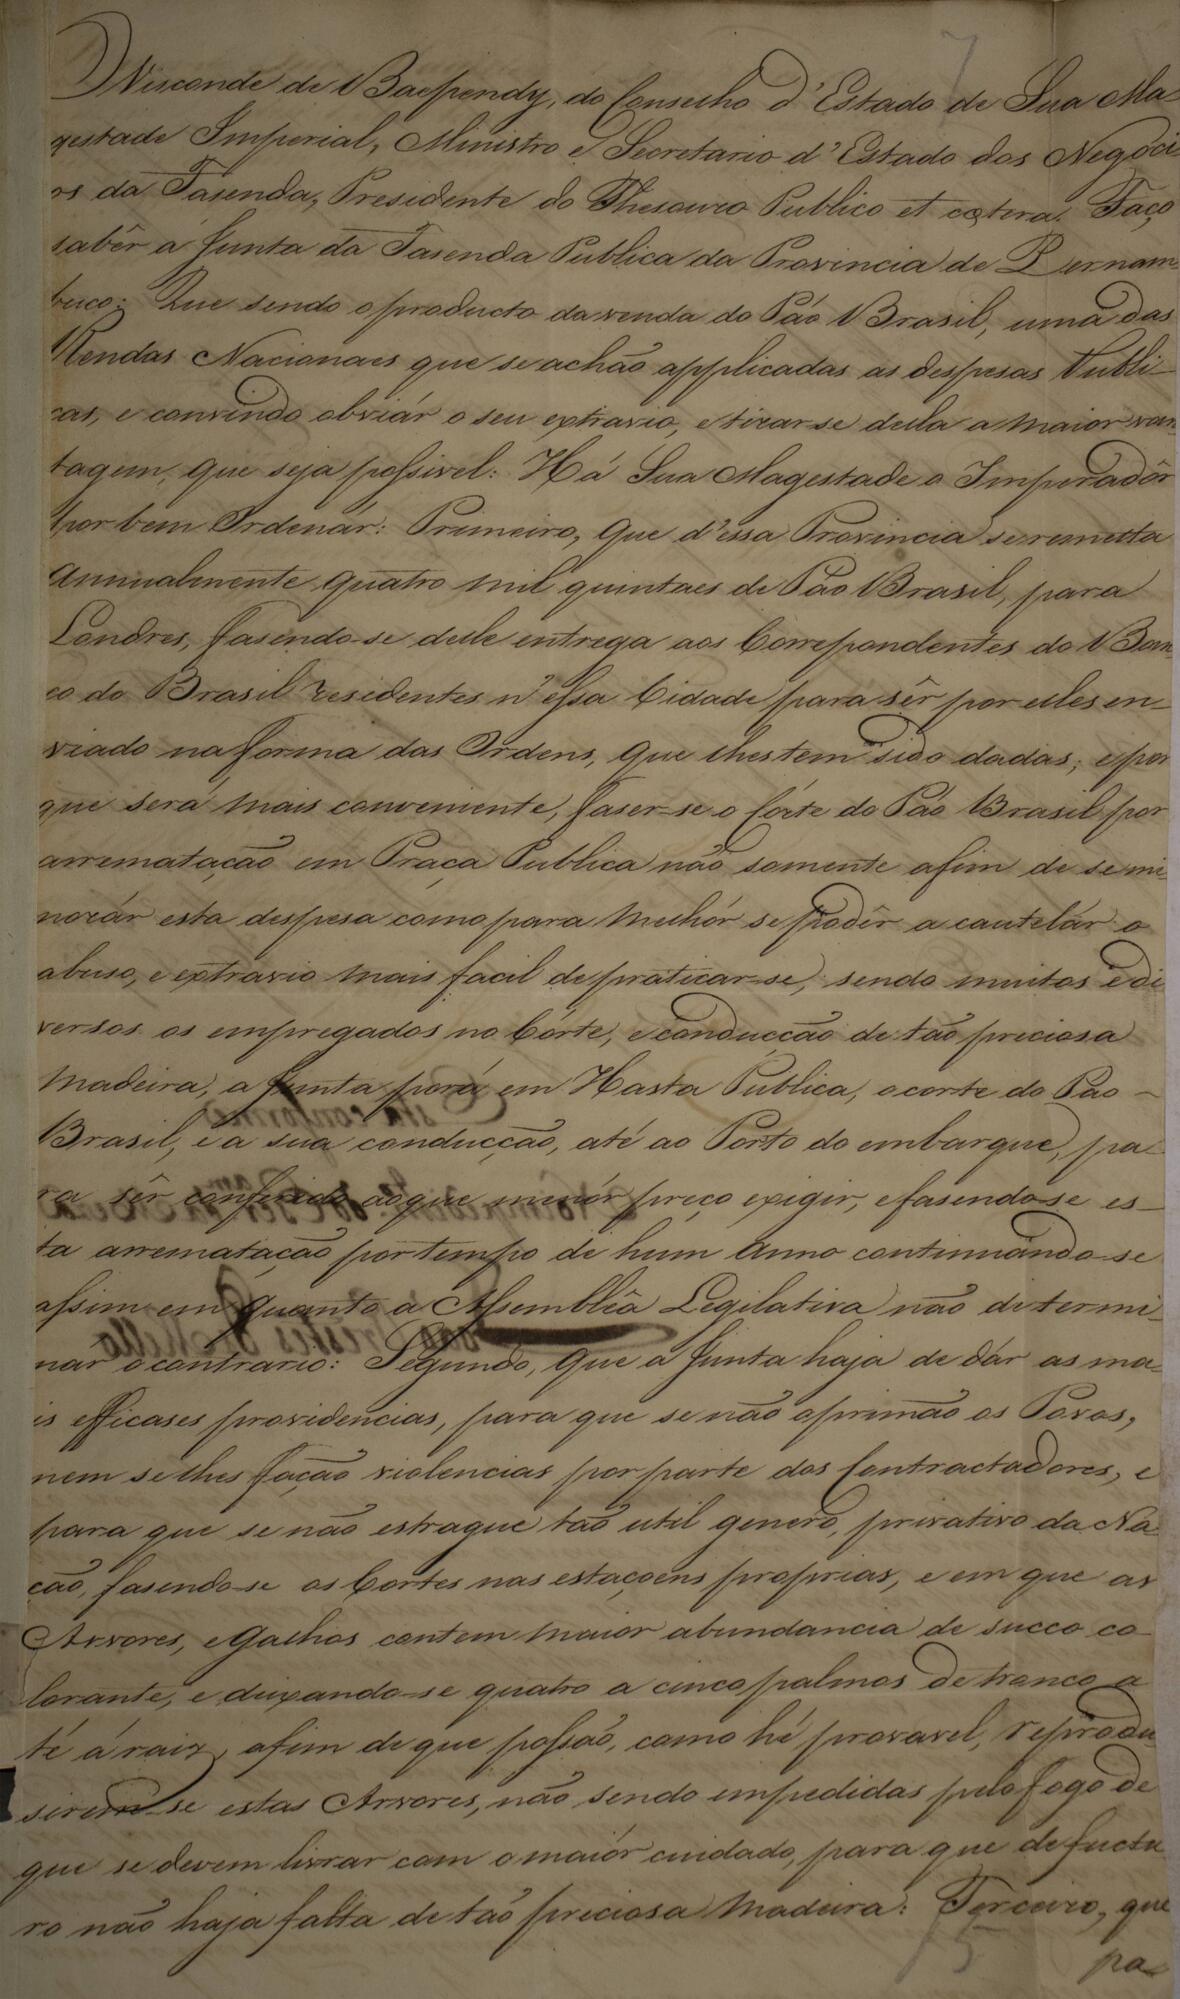 O Visconde de Baependy, do Conselho d'Estado de Sua Ma-
gestade Imperial, Ministro e Secretario d'Estado dos Negoci-
os da Fasenda, Presidente do Thesouro Publico et cœtera. Faço
sabêr á Junta da Fasenda Publica da Provincia de Pernam-
buco: Que sendo o producto da venda do Páo Brasil, uma das
Rendas Nacionaes que se achão applicadas as despesas Publi-
cas, e convindo obviár o seu extravio, e tirar-se della a maior van-
tagem, que seja possivel: Há Sua Magestade o Imperadôr
por bem Ordenár: Primeiro, Que d'essa Provincia se remetta
annualmente quatro mil quintaes de Páo Brasil, para
Londres, fasendo-se delle entrega aos Correspondentes do Ban-
co do Brasil residentes n'essa Cidade para sêr por elles en-
viado na forma das Ordens, que lhes tem sido dadas; e por
que será mais conveniente, faser-se o Córte do Páo Brasil por
arrematação em Praça Publica não somente afim de se mi-
norár esta despesa como para melhór se podêr acautelár o
abuso, e extravio mais facil de praticar-se, sendo muitos e di
versos os empregados no Córte, e conducção de tão preciosa
Madeira, a Junta porá em Hasta Publica, o corte do Páo -
Brasil, e a sua conducção, até ao Porto do embarque, pa-
ra sêr conferido ao que menór preço exigir, e fasendo-se es-
ta arrematação por tempo de hum anno continuando-se
assim em quanto a Assemblêa Legilativa não determi-
nár o contrario: Segundo, Que a Junta haja de dár as ma-
is efficases providencias, para que se não oprimão os Povos,
nem se lhes fação violencias por parte dos Contractadores, e
para que se não estrague tão util genero, privativo da Na-
ção, fasendo-se os Cortes nas estaçoens proprias, e em que as
Arvores, e Galhos contem maior abundancia de succo co-
lorante, e deixando-se quatro a cinco palmos de tronco a-
té á raiz, afim de que possão, como hé provavel, reprodu
sirem-se estas Arvores, não sendo impedidas pelo fogo de
que se devem livrar com o maiór cuidado, para que de fuctu
ro não haja falta de tão preciosa Madeira: Terceiro, que
pa-